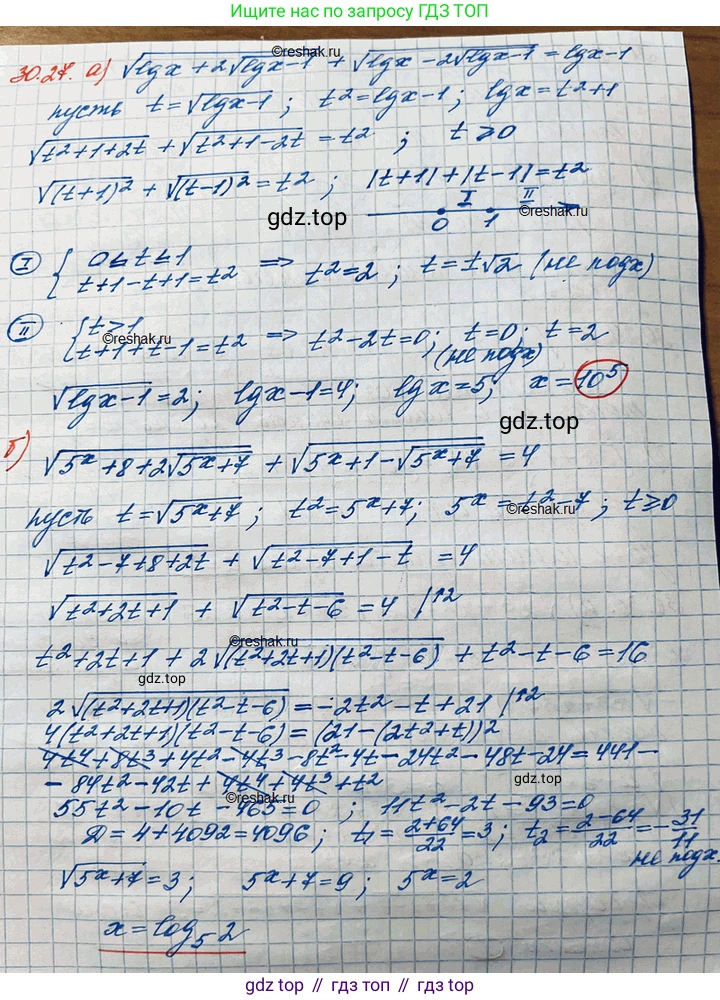 Ищите нас по запросу ГДЗ ТОП
30.27. а) √(lgx + 2√(lgx-1)) + √(lgx - 2√(lgx-1)) = lgx-1
©reshak.ru
пусть t = √(lgx-1) ; t² = lgx-1 ; lgx = t²+1
√(t²+1+2t) + √(t²+1-2t) = t² ; t ≥ 0
√((t+1)²) + √((t-1)²) = t² ; |t+1| + |t-1| = t²
I II
gdz.top ©reshak.ru
0 1
I { 0 ≤ t ≤ 1
t+1-t+1 = t² ⇒ t² = 2 ; t = ±√2 (не подх)
II { t > 1
©reshak.ru
t+1+t-1 = t² ⇒ t²-2t = 0; t = 0; t = 2
(не подх)
√(lgx-1) = 2; lgx-1 = 4; lgx = 5; x = 10⁵
gdz.top
б) √(5ˣ+8+2√(5ˣ+7)) + √(5ˣ+1-√(5ˣ+7)) = 4
пусть t = √(5ˣ+7) ; t² = 5ˣ+7; 5ˣ = t²-7 ; t ≥ 0
©reshak.ru
√(t²-7+8+2t) + √(t²-7+1-t) = 4
√(t²+2t+1) + √(t²-t-6) = 4 |↑2
©reshak.ru
t²+2t+1 + 2√((t²+2t+1)(t²-t-6)) + t²-t-6 = 16
gdz.top
2√((t²+2t+1)(t²-t-6)) = -2t²-t+21 |↑2
4(t²+2t+1)(t²-t-6) = (21-(2t²+t))²
4t⁴+8t³+4t²-4t³-8t²-4t-24t²-48t-24 = 441-
-84t²-42t+4t⁴+4t³+t²
gdz.top
55t²-10t-465 = 0 ; 11t²-2t-93 = 0
©reshak.ru
Д = 4+4092 = 4096 ; t₁ = (2+64)/22 = 3; t₂ = (2-64)/22 = -31/11
не подх.
√(5ˣ+7) = 3; 5ˣ+7 = 9; 5ˣ = 2
©reshak.ru
x = log₅2
gdz.top // гдз.топ // gdz.top // гдз.топ // gdz.top